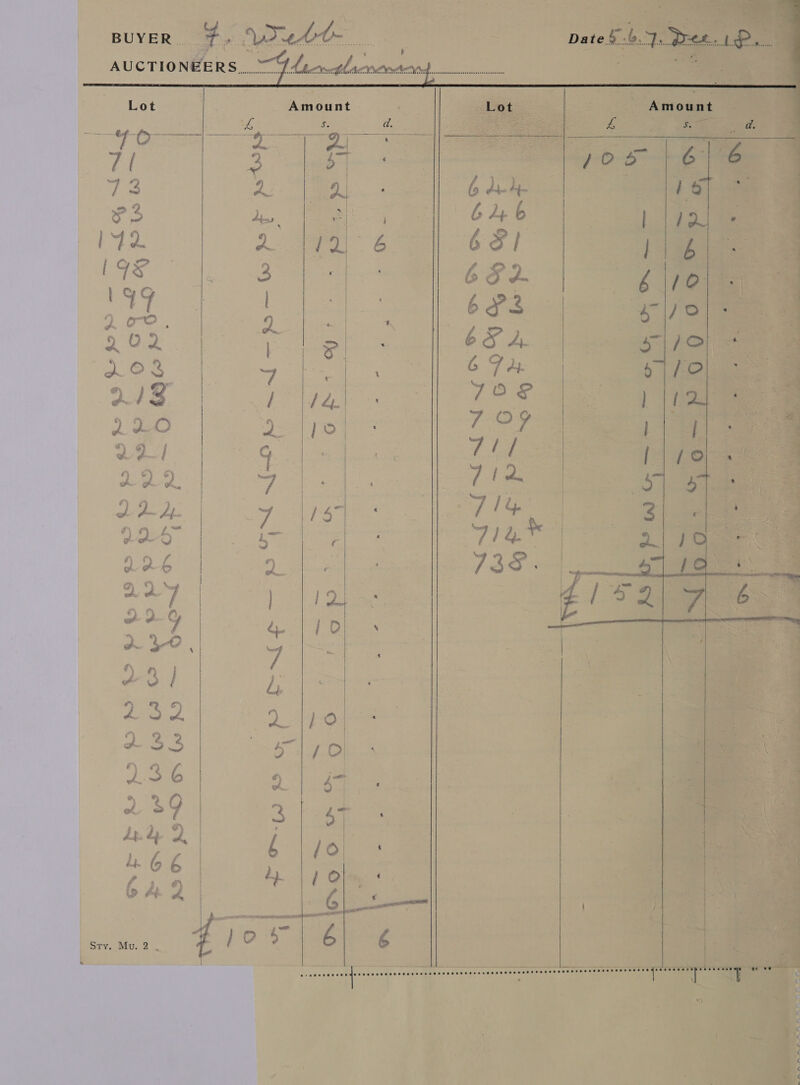 BUYER F. Webb Date 5.6.7. Dec. 18.
AUCTIONEERS Glendinning
Lot Amount Lot Amount
£ s. d. £ s. d.
70 2 2 - 105 6 6
71 3 5 -
73 2 2 - 644 15 -
83 4 - - 646 1 12 -
192 2 12 6 681 1 6 -
198 3 - - 682 6 10 -
199 1 - - 683 5 10 -
200. 2 - - 684 5 10 -
202 1 8 - 694 5 10 -
203 7 - - 708 1 12 -
218 1 14 - 709 1 1 -
220 2 10 - 711 1 10 -
221 9 - - 712 5 5 -
222 7 - - 714 3 - -
224 7 15 - 714* 2 10 -
225 5 - - 738. 5 10 -
226 2 - -
227 1 12 - £152 7 6
229 4 10 -
230. 7 - -
231 4 - -
232 2 10 -
233 5 10 -
236 2 5 -
239 3 5 -
442 6 10 -
466 4 10 -
642 6 -
Sty. Mu. 2 £105 6 6